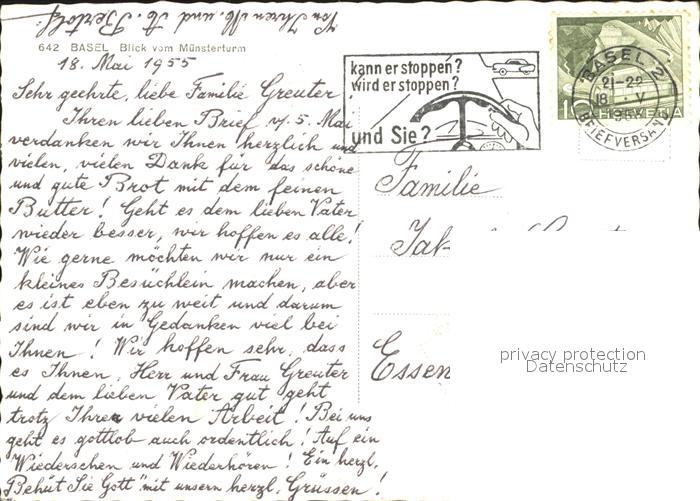 Von Ihren M. und A. Bertolf.
642 BASEL Blick vom Münsterturm
18. Mai 1955
Sehr geehrte, liebe Familie Greuter!
Ihren lieben Brief v. 5. Mai
verdanken wir Ihnen herzlich und
vielen, vielen Dank für das schöne
und gute Brot mit dem feinen
Butter! Geht es dem lieben Vater
wieder besser, wir hoffen es alle!
Wie gerne möchten wir nur ein
kleines Besüchlein machen, aber
es ist eben zu weit und darum
sind wir in Gedanken viel bei
Ihnen! Wir hoffen sehr, dass
es Ihnen, Herr und Frau Greuter
und dem lieben Vater gut geht
trotz Ihrer vielen Arbeit! Bei uns
geht es gottlob auch ordentlich! Auf ein
Wiedersehen und Wiederhören! Ein herzl.
"Behüt Sie Gott" mit unsern herzl. Grüssen!
kann er stoppen?
wird er stoppen?
und Sie?
BASEL 2
21-22
18. V.
BRIEFVERSAND
10 HELVETIA
Familie
Jak
Essen
privacy protection
Datenschutz